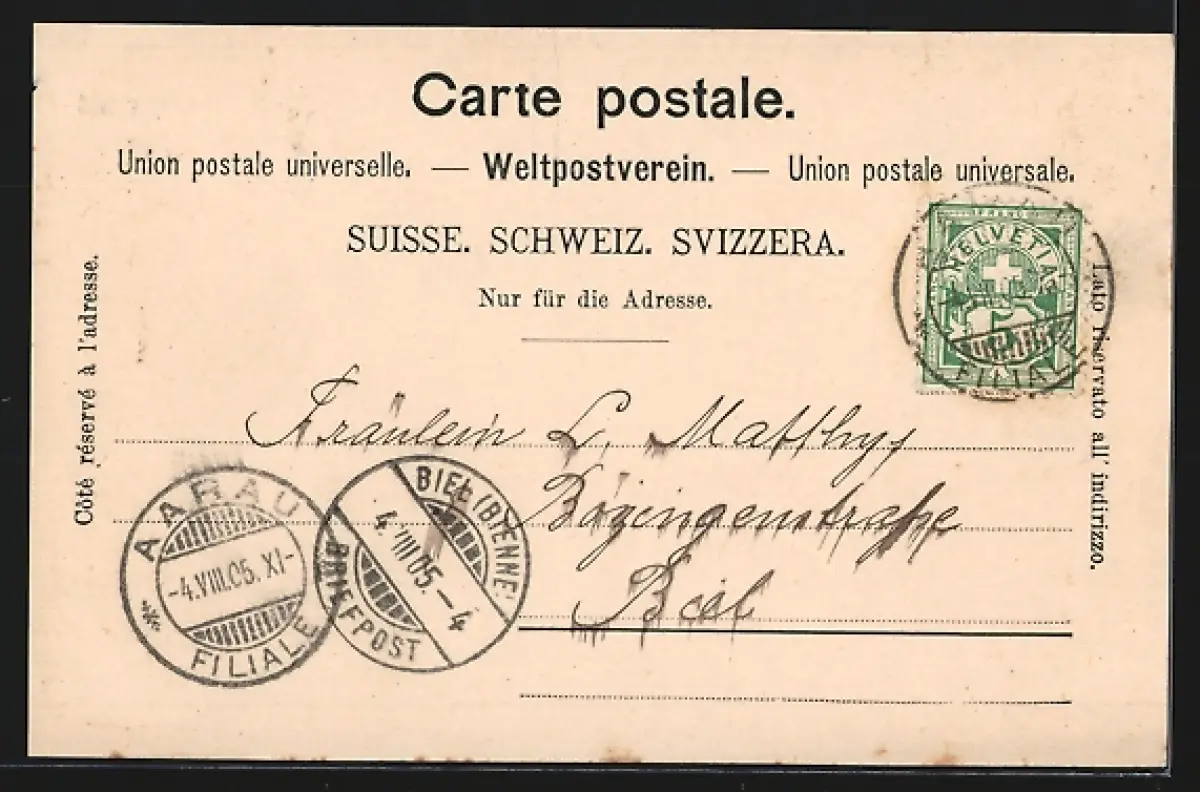 Carte postale.
Union postale universelle. — Weltpostverein. — Union postale universale.
SUISSE. SCHWEIZ. SVIZZERA.
Nur für die Adresse.
Côté réservé à l'adresse.
Lato riservato all' indirizzo.
FRANCO
HELVETIA
5
FILIALE
Fräulein L. Matthys
Bözingenstraße
Biel
AARAU
-4.VIII.05. XI-
FILIALE
BIEL (BIENNE)
4.VIII.05.-4
BRIEFPOST